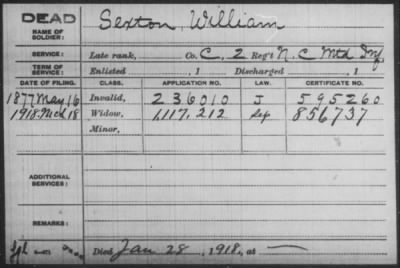 DEAD
NAME OF SOLDIER: Sexton, William
SERVICE: Late rank, Co. C, 2 Reg't N. C. Mtd Inf.
TERM OF SERVICE: Enlisted , 1 Discharged , 1
DATE OF FILING. CLASS. APPLICATION NO. LAW. CERTIFICATE NO.
1877 May 16 Invalid, 236010 J 595260
1918 Mch 18 Widow, 1,117,212 Sep 856737
Minor,
ADDITIONAL SERVICES:
REMARKS:
Died Jan 28, 1918, at —